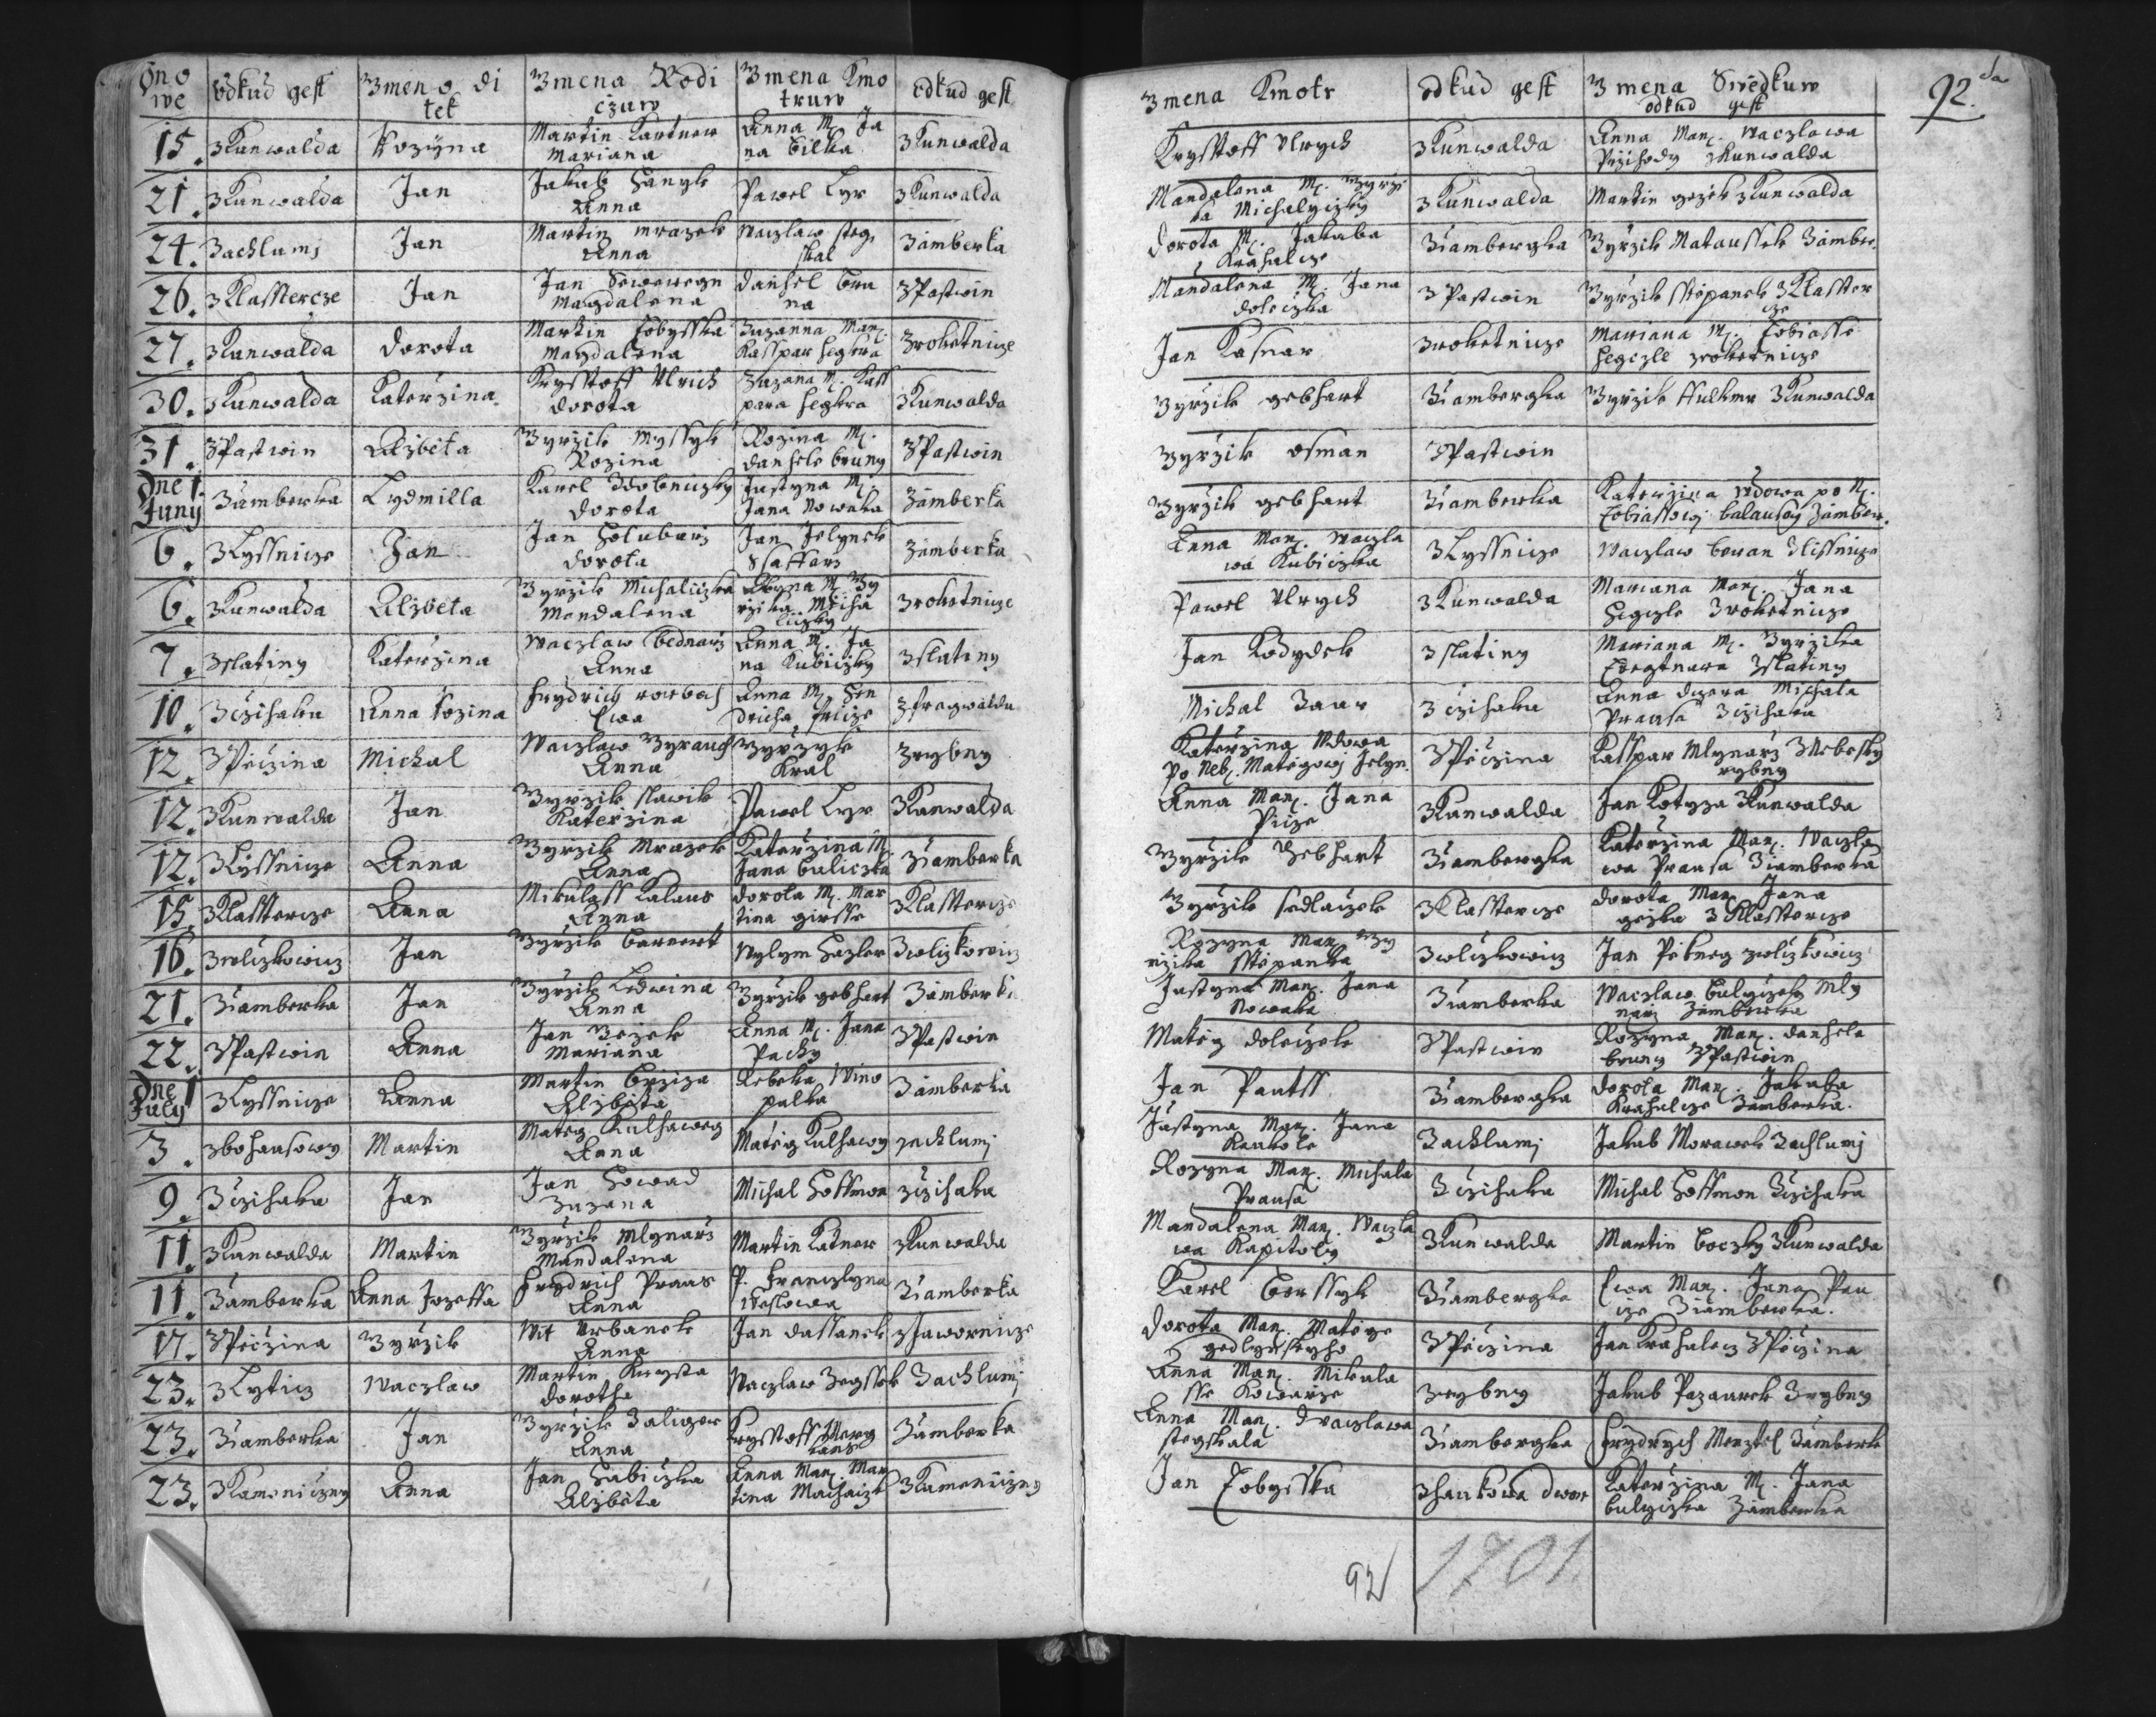 Dno we | Odkud gest | Jmeno di tek | Jmena Rodi czuw | Jmena Kmo truw | odkud gest | Jmena Kmotr | odkud gest | Jmena Swedkuw odkud gest | 92.
15. | z Kunwalda | Rozyna | Martin Kartner Mariana | Anna M. Ja na Bilka | z Kunwalda | Krysstoff Ulrych | z Kunwalda | Anna Man. Waczlawa Przihody z Kunwalda
21. | z Kunwalda | Jan | Jakub Hanyk Anna | Pawel Lyr | z Kunwalda | Mandalena M. Jyrzi ka Michalyczky | z Kunwalda | Martin gezek z Kunwalda
24. | Zachlumj | Jan | Martin mrazek Anna | Waczlaw steg skal | z Žamberka | Dorota M. Jakuba Krahulcze | z Žambergka | Jyrzik Mataussek Žamber.
26. | z Klasstercze | Jan | Jan Magdalena | Daniel Bru na | z Pastwin | Mandalena M. Jana doleczka | z Pastwin | Jyrzik sstepanek z Klasster cze
27. | z Kunwalda | Dorota | Martin Tobysska Magdalena | Zuzanna Man. Kasspar hegkra | z roketnicze | Jan Kasnar | z roketnicze | Mariana M. Tobiasse hegczle z roketnicze
30. | z Kunwalda | Katerzina | Krysstoff Ulrich Dorota | Zuzana M. Kass para hegkra | z Kunwalda | Jyrzik gebhart | z Žambergka | Jyrzik z Kunwalda
31. | z Pastwin | Alzbeta | Jyrzik Myssyk Rozina | Rozina M. Daniele bruny | z Pastwin | Jyrzik osman | z Pastwin
Dne 1. Juny | z Žamberka | Lydmilla | Karel Dorota | Justyna M. Jana Nowaka | z Žamberka | Jyrzik gebhart | z Žamberka | Katerzina wdowa po N. Tobiassowj Žamber.
6. | z Lyssnicze | Jan | Jan Holubarz Dorota | Jan Jelynek Ssaffarz | z Žamberka | Anna Man. Waczla wa Kubiczka | z Lyssnicze | Waczlaw beran z Lissnicze
6. | z Kunwalda | Alzbeta | Jyrzik Michaliczka Mandalena | M. Jy rzika Micha liczky | z roketnicze | Pawel Ulrych | z Kunwalda | Mariana Man. Jana Hegczle z roketnicze
7. | z slatiny | Katerzina | Waczlaw bednarz Anna | Anna M. Ja na Kubiczky | z slatiny | Jan Kodydek | z slatiny | Mariana M. Jyrzika z slatiny
10. | z cziháku | Anna Rozina | Frydrich rorbach Ewa | Anna M. Hen dricha fricze | z fragwaldu | Michal Zaar | z czihaku | Anna dcera Michala Prausa z czihaku
12. | z Pieczina | Michal | Waczlaw Jyrauch Anna | Jyrzyk Kral | z rybny | Katerzina Wdowa po Neb. Mategowj Jelyn. | z Pieczina | Kasspar Mlynarz z Nebesky rybny
12. | z Kunwalda | Jan | Jyrzik slawik Katerzina | Pawel Lyr | z Kunwalda | Anna Man. Jana Picze | z Kunwalda | Jan Kotyza z Kunwalda
12. | z Lyssnicze | Anna | Jyrzik Mrazek Anna | Katerzina M. Jana buliczka | z Žamberka | Jyrzik Gebhart | z Žambergka | Katerzina Man. Waczla wa Prausa z Žamberka
15. | z Klassterce | Anna | Mikulass Kalaus Anna | Dorota M. Mar tina girsse | z Klassterce | Jyrzik sedlaczek | z Klassterce | Dorota Man. Jana gezka z Klassterce
16. | z wliczkowicz | Jan | Jyrzik barnert | Wylym hazler | z wliczkowicz | Rozyna Man. Jy rzika sstepanka | z wliczkowicz | Jan Pekney z wliczkowicz
21. | z Žamberka | Jan | Jyrzik Ledwina Anna | Jyrzik gebhart | z Žamberka | Justyna Man. Jana Nowaka | z Žamberka | Waczlaw bulyczek Mly narz z Žamberka
22. | z Pastwin | Anna | Jan Bezek Mariana | Anna M. Jana Pachy | z Pastwin | Mateg doleczek | z Pastwin | Rozyna Man. Daniela bruny z Pastwin
Dne 1 July | z Lyssnicze | Anna | Martin brziza Alzbeta | Rebeka Wino palka | z Žamberka | Jan Pautss | z Žambergka | Dorota Man. Jakuba Krahulcze z Žamberka.
3. | z bohausowy | Martin | Mateg Kulhaweg Anna | Mateg Kulhawy | zachlumj | Justyna Man. Jana Kaukole | Zachlumj | Jakub Morawek Zachlumj
9. | z czihaka | Jan | Jan Howad Zuzana | Michal Hoffman | z czihaka | Rozyna Man. Michala Prausa | z czihaka | Michal Hoffman z czihaka
11. | z Kunwalda | Martin | Jyrzik Mlynarz Mandalena | Martin Katner | z Kunwalda | Mandalena Man. Waczla wa Kapitoly | z Kunwalda | Martin boczky z Kunwalda
11. | z Žamberka | Anna Jozeffa | Frydrich Praus Anna | P. Franczlyna Weslowa | z Žamberka | Karel Berssyk | z Žambergka | Ewa Man. Jana Pau cze z Žamberka.
17. | z Pieczina | Jyrzik | Wit Urbanek Anna | Jan dassanek | z Jawornicze | Dorota Man. Mategze gedlynskyho | z Pieczina | Jan Krahulecz z Pieczina
23. | z Lyticz | Waczlaw | Martin Krysta Dorotha | Waczlaw Jegssek | Zachlumj | Anna Man. Mikula sse Kowarze | z rybny | Jakub Pazaurek z rybny
23. | z Žamberka | Jan | Jyrzik Zaliger Anna | Krysstoff | z Žamberka | Anna Man. Waczlawa stegskala | z Žambergka | Frydrych Menztel z Žamberk
23. | z Kameniczny | Anna | Jan Habiczka Alzbeta | Anna Man. Mar tina Machaczk | z Kameniczny | Jan Tobysska | z hankowa dwor | Katerzina M. Jana bulyczka z Žamberka
92
1701.